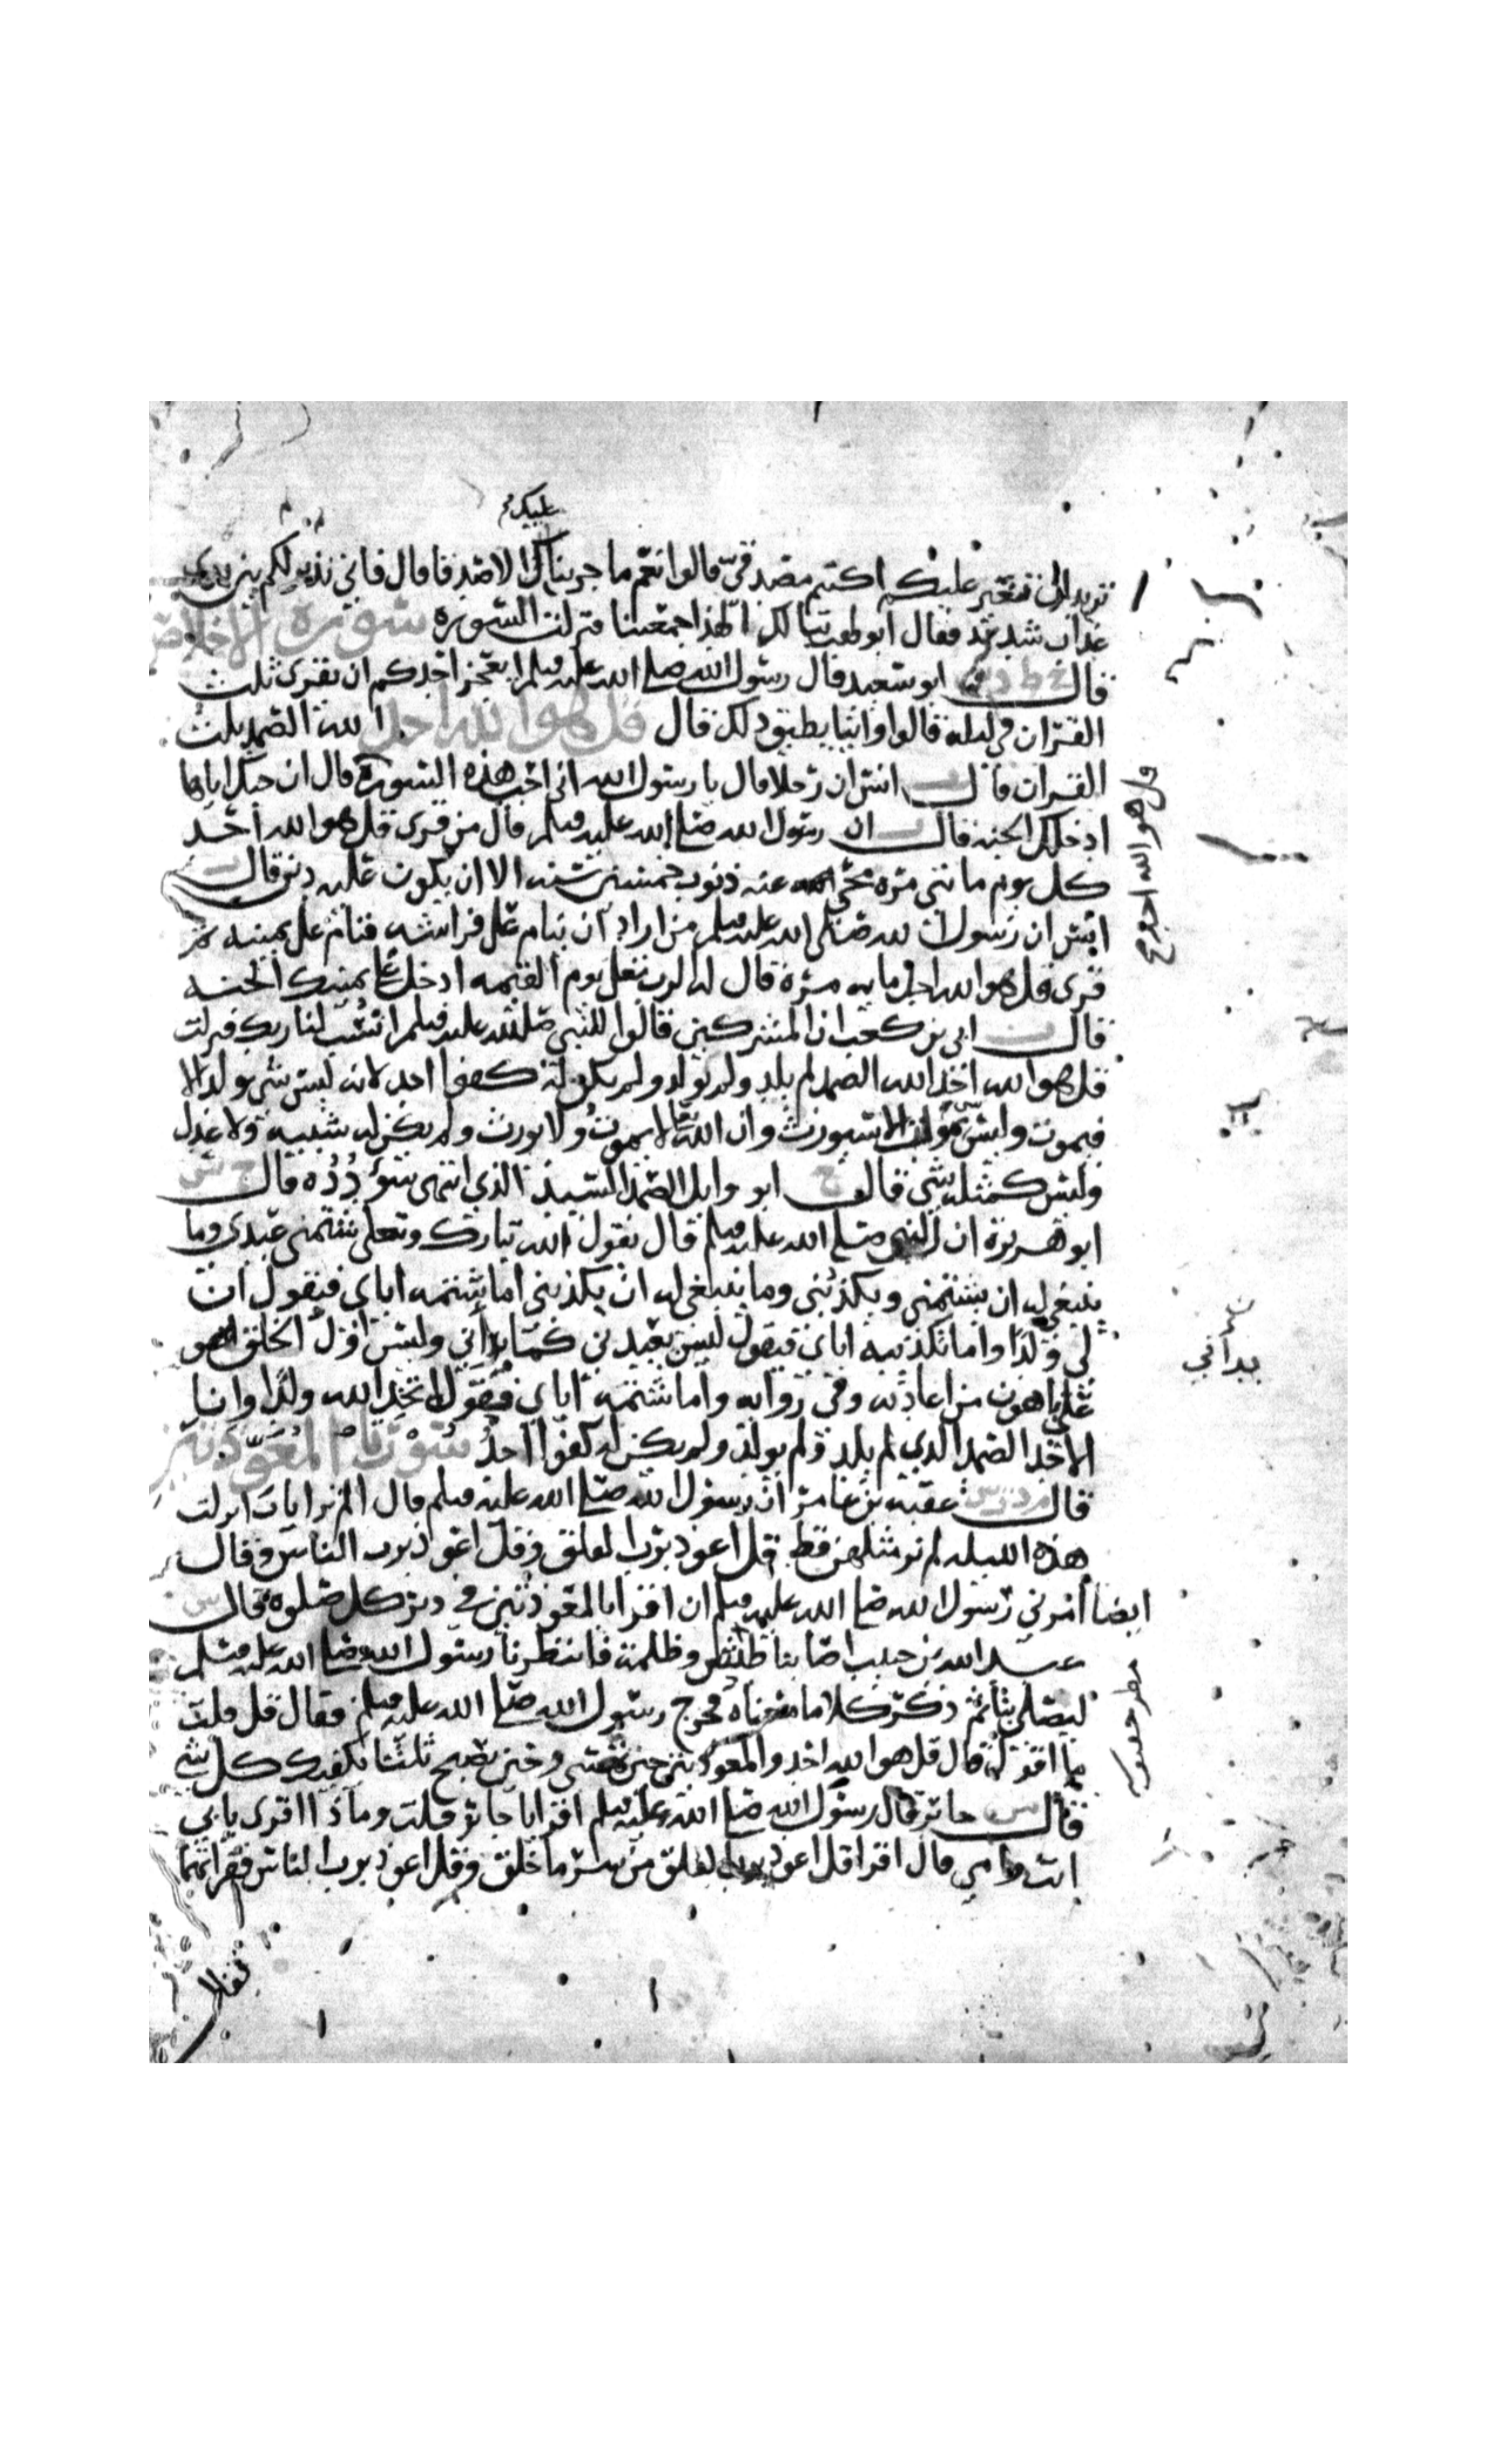 عليك
تريد ان تغير عليكم اكنتم مصدقي قالوا نعم ما جربنا الا صدقا قال فاني نذير لكم بين يدي
عذاب شديد فقال ابو لهب تبا لك الهذا جمعتنا فنزلت السورة سورة الاخلاص
قال خ ط د س ابو سعيد قال رسول الله صلى الله عليه وسلم ايعجز احدكم ان يقرى ثلث
القران في ليله قالوا واينا يطيق ذلك قال قل هو الله احد الله الصمد ثلث
القران قال ت انس ان رجلا قال يا رسول الله اني احب هذه السورة قال ان حبك اياها
ادخلك الجنه قال ت ان رسول الله صلى الله عليه وسلم قال من قرى قل هو الله احد
كل يوم مائتي مره محي عنه ذنوب خمسين سنه الا ان يكون عليه دين قال ت
انس ان رسول الله صلى الله عليه وسلم من اراد ان ينام على فراشه فنام على يمينه ثم
قرى قل هو الله احد مايه مرة قال له الرب تعلى يوم القيمه ادخل على يمينك الجنه
قال ت ابي بن كعب ان المشركين قالوا للنبي صلى الله عليه وسلم انسب لنا ربك فنزلت
قل هو الله احد الله الصمد لم يلد ولم يولد ولم يكن له كفوا احد لانه ليس شي يولد الا
فيموت وليس يموت الا سيورث وان الله لا يموت ولا يورث ولم يكن له شبيه ولا عدل
وليس كمثله شي قال خ ابو وايل الصمد السيد الذي انتهى سؤدده قال خ س
ابو هريرة ان النبي صلى الله عليه وسلم قال يقول الله تبارك وتعلى شتمني عبدي وما
ينبغي له ان يشتمني ويكذبني وما ينبغي له ان يكذبني اما شتمه اياي فيقول ان
لي ولدا واما تكذيبه اياي فيقول ليس يعيدني كما بداني وليس اول الخلق
علي باهون من اعادته وفي روايه واما شتمه اياي فيقول اتخذ الله ولدا وانا
الاحد الصمد الذي لم يلد ولم يولد ولم يكن له كفوا احد سورتا المعوذتين
قال م د ت س عقبه بن عامر ان رسول الله صلى الله عليه وسلم قال الم تر ايات انزلت
هذه الليله لم نر مثلهن قط قل اعوذ برب الفلق وقل اعوذ برب الناس وقال
ايضا امرني رسول الله صلى الله عليه وسلم ان اقرا بالمعوذتين في دبر كل صلوة قال س
عبد الله بن خبيب اصابنا طش وظلمة فانتظرنا رسول الله صلى الله عليه وسلم
ليصلي بنا ثم ذكر كلاما معناه فخرج رسول الله صلى الله عليه وسلم فقال قل قلت
ما اقول قال قل هو الله احد والمعوذتين حين تمسي وحين تصبح ثلثا تكفيك كل شي
قال س جابر قال رسول الله صلى الله عليه وسلم اقرا يا جابر قلت وماذا اقرى بابي
انت وامي قال اقرا قل اعوذ برب الفلق من شر ما خلق وقل اعوذ برب الناس فقراتهما
قل هو الله احد
بداني